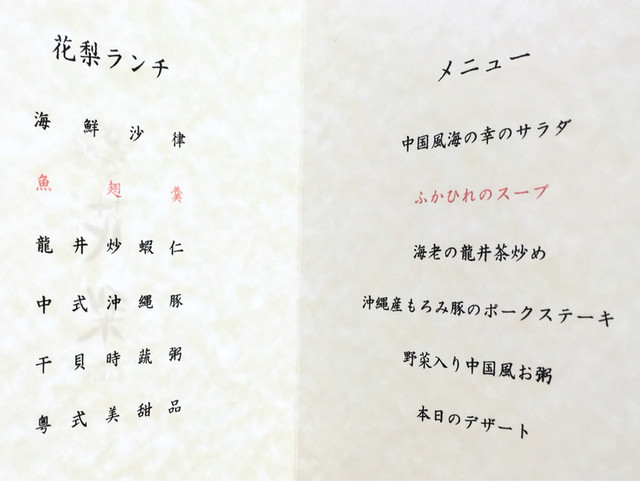 花梨ランチ
海鮮沙律
魚翅羹
龍井炒蝦仁
中式沖縄豚
干貝時蔬粥
粤式美甜品
メニュー
中国風海の幸のサラダ
ふかひれのスープ
海老の龍井茶炒め
沖縄産もろみ豚のポークステーキ
野菜入り中国風お粥
本日のデザート